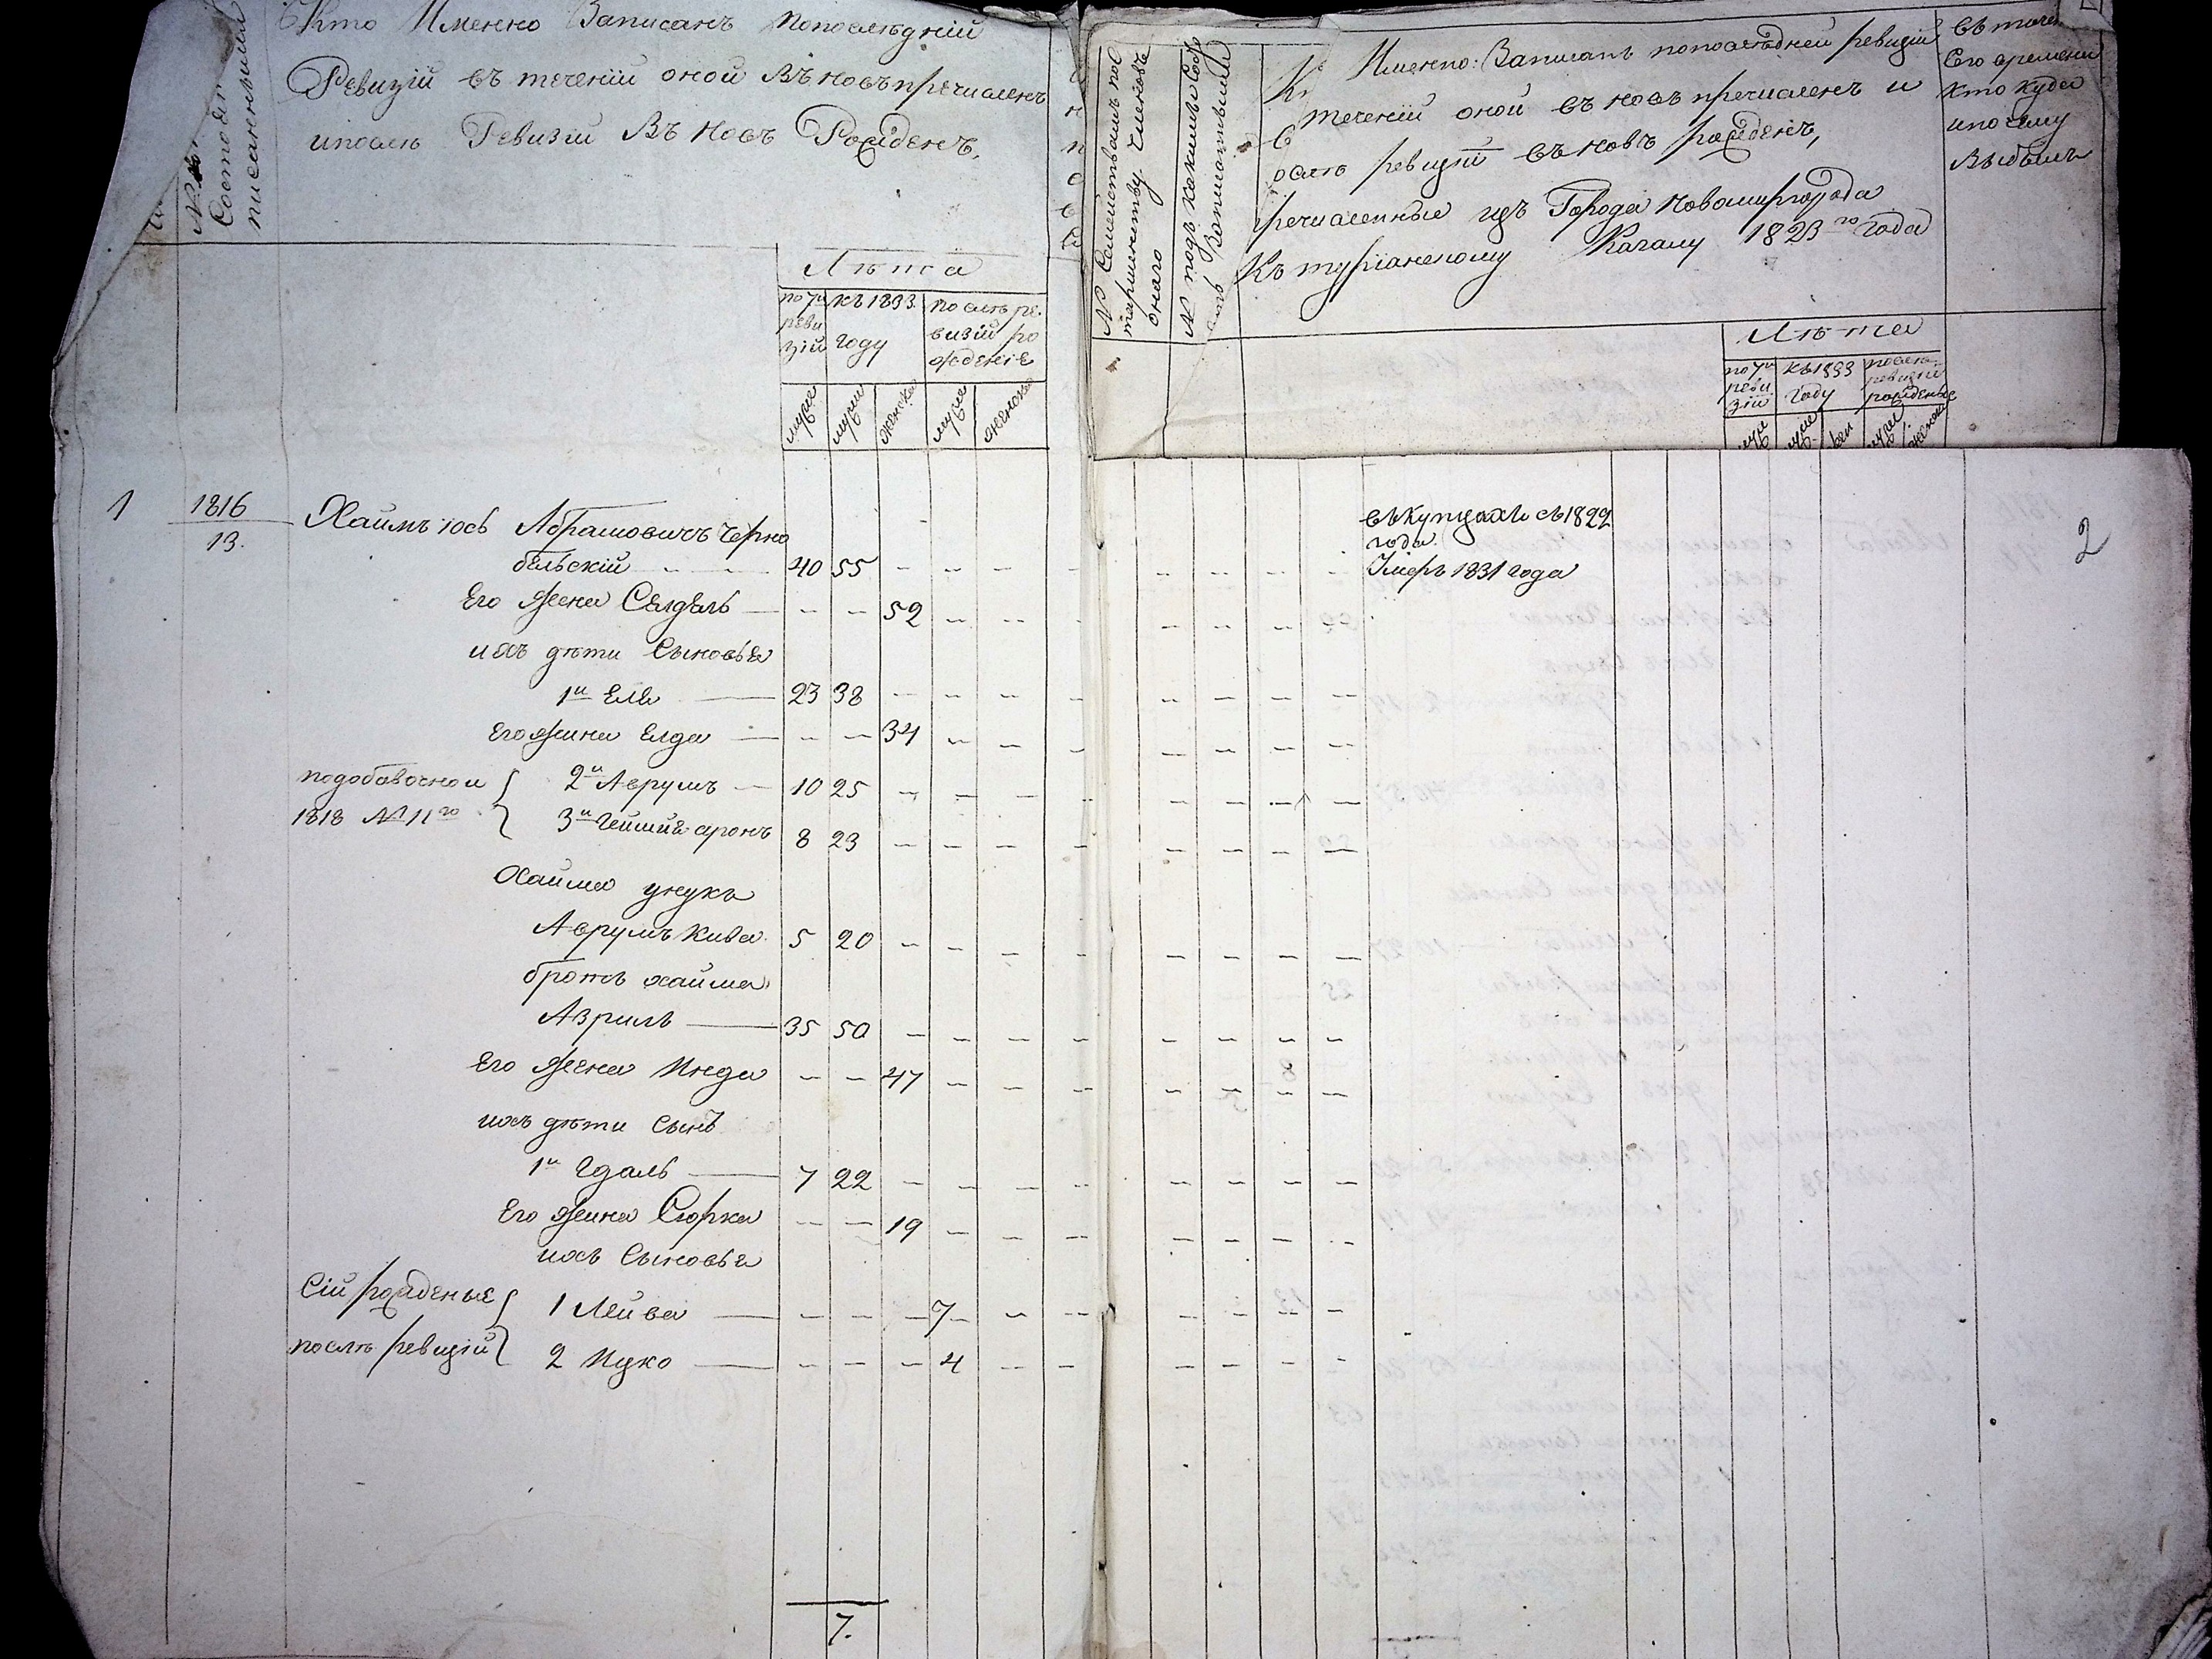 Кто Именно Записанъ попослѣдній
Ревизій въ теченіи оной Въ новъ пречисленъ
ипослѣ Ревизіи Въ новъ Рожденъ.
Лѣта
по 7й
реви
зій
къ 1833
году
послѣ ре
визій ро
жденіе
муже
муже
женска
муже
женска
№ Семействамъ по
старшинству членовъ
онаго
Именно: Записанъ попослѣдней ревизіи
теченій оной въ новъ пречисленъ и
ослѣ ревизій въ новъ рожденъ,
пречисленные изъ Города Новомиргорода
Къ турїанскому Кагалу 1823го года
Въ тече
Сего времени
кто куда
ипочему
Выбылъ
Лѣта
по 7й
реви
зій
къ 1833
году
послѣ
ревизій
рожденые
1
1816
13.
Хаимъ іось Абрамовичъ Черно
бельскій 40 55
въ купцахъ съ 1822
года
Умеръ 1831 года
2
Его жена Сендель 52
ихъ дѣти Сыновья
1й Еля 23 38
Его жена Елда 34
подобавочной
1818 № 11го
2й Аврумъ 10 25
3й Гейшія аронъ 8 23
Хаима унукъ
Аврумъ Кива 5 20
братъ хаима
Азриль 35 50
Его жена Инда 47
ихъ дѣти Сынъ
1й Гдаль 7 22
Его жена Сюрка 19
ихъ Сыновья
Сіи рожденые
послѣ ревизій
1 Лейва 7
2 Ицко 4
7.